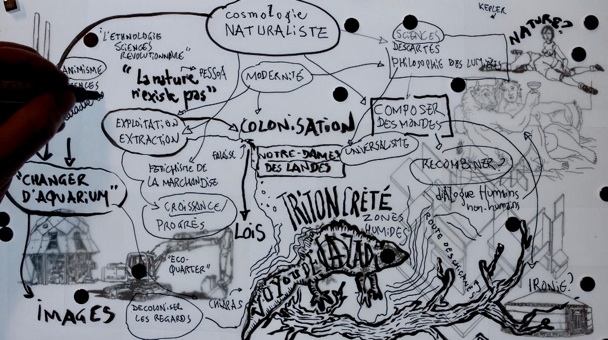 cosmologie
NATURALISTE
KEPLER
NATURE?
"L'ETHNOLOGIE
SCIENCES
REVOLUTIONNAIRE"
SCIENCES
DESCARTES
PHILOSOPHIE DES LUMIÈRES
ANIMISME
"La nature
n'existe pas"
PESSOA
MODERNITÉ
EXPLOITATION
EXTRACTION
COLONISATION
COMPOSER
DES MONDES
UNIVERSALISME
NOTRE-DAME-
DES LANDES
RECOMBINER?
dialogue Humains
non-humains
FETICHISME DE
LA MARCHANDISE
"CHANGER
D'AQUARIUM"
CROISSANCE/
PROGRÈS
LOIS
TRITON CRÊTÉ
ZONES
HUMIDES
"ECO-
QUARTIER"
IRONIE?
IMAGES
DECOLONISER
LES REGARDS